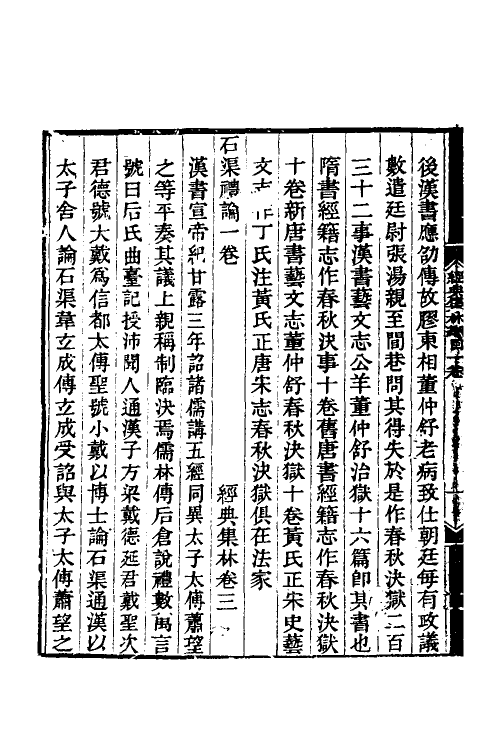 後漢書應劭傳故膠東相董仲舒老病致仕朝廷每有政議
數遣廷尉張湯親至閭巷問其得失於是作春秋決獄二百
三十二事漢書藝文志公羊董仲舒治獄十六篇卽其書也
隋書經籍志作春秋決事十卷舊唐書經籍志作春秋決獄
十卷新唐書藝文志董仲舒春秋決獄十卷黃氏正宋史藝
文志作丁氏注黃氏正唐宋志春秋決獄俱在法家
石渠禮論一卷　經典集林卷三
漢書宣帝紀甘露三年詔諸儒講五經同異太子太傅蕭望
之等平奏其議上親稱制臨決焉儒林傳后倉說禮數萬言
號曰后氏曲臺記授沛聞人通漢子方梁戴德延君戴聖次
君德號大戴爲信都太傅聖號小戴以博士論石渠通漢以
太子舍人論石渠韋玄成傳玄成受詔與太子太傅蕭望之